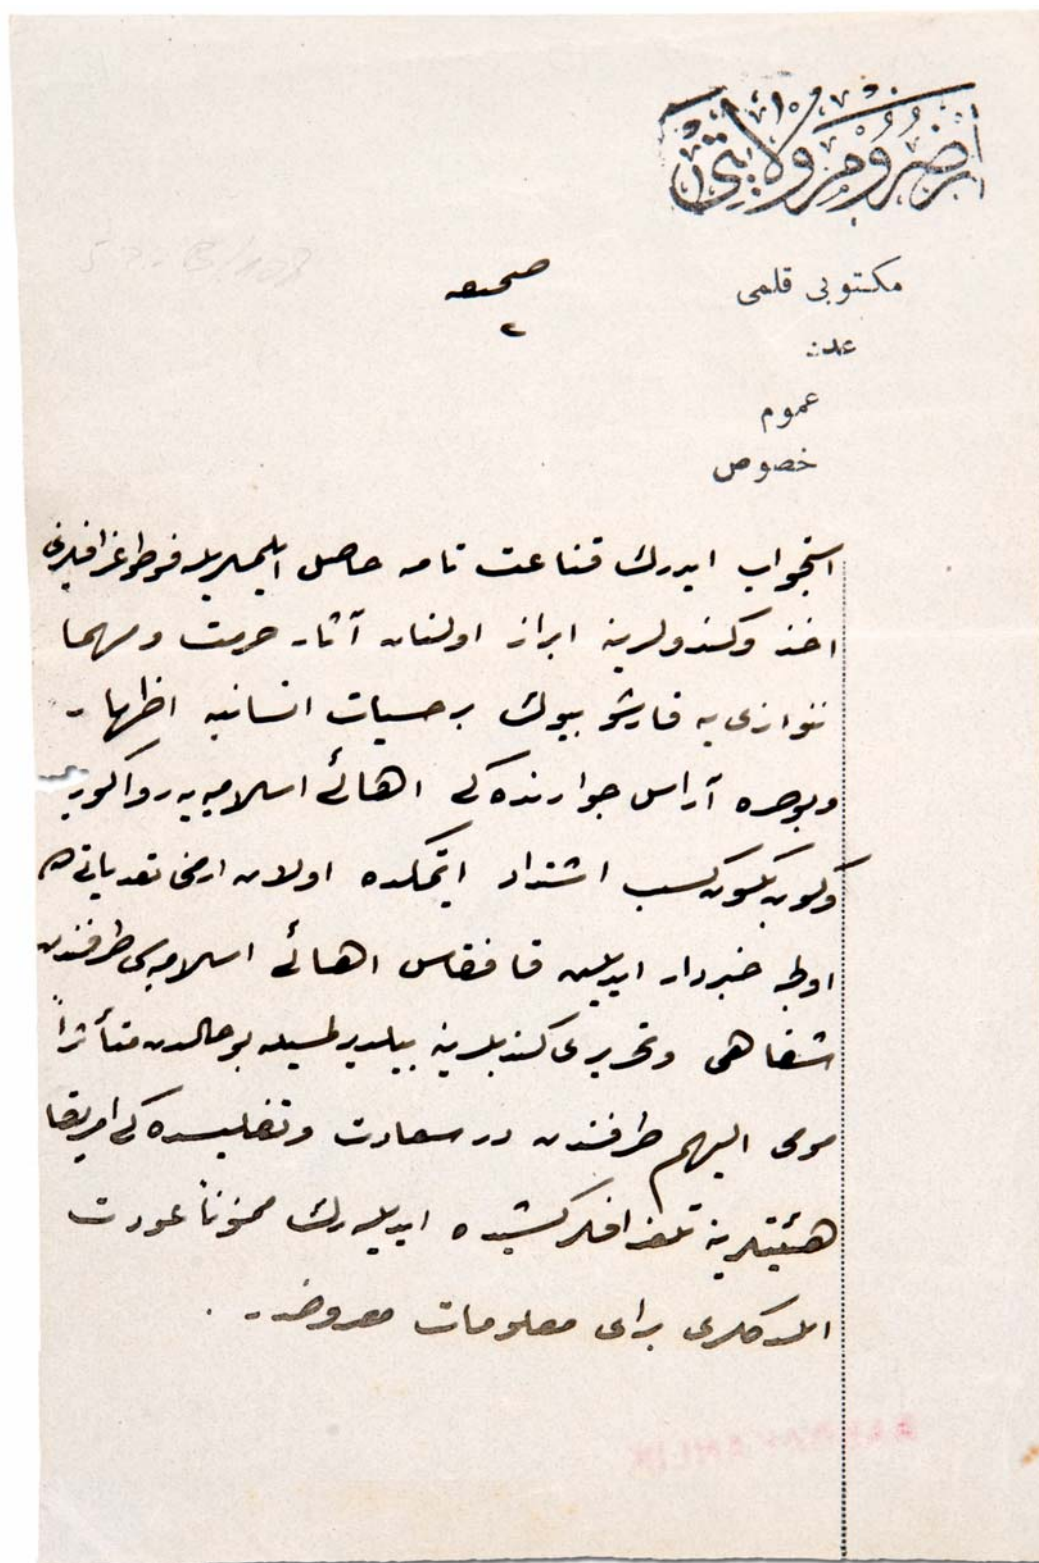 أرضروم ولايتى
مكتوبى قلمى
صحيفه
٢
عدد
عموم
خصوص
استجواب ايدرك قناعت تامه حاصل ايلميلريله فوطوغرافيلرنى
اخذ وكندولرينه ابراز اولنان آثار حرمت ومهما
ننوازى يه قارشو بيوك بر حسيات انسانيه اظهار
وبوصره آراس جوارنده كى اهالئ اسلاميه يه روا كور
وكون بكون كسب اشتداد ايتمكده اولان ارمنى تعدياتى هم
اولجه خبردار ايديلين قافقاس اهالئ اسلاميه سى طرفندن
شفاهى وتحريرى كنديلرينه بيلديرلمسيله بو حالدن متأثراً
مومى اليهم طرفندن درسعادت وتفليسده كى امريقا
هيئتلرينه تلغرافلر كشيده ايديله رك ممنوناً عودت
ايلدكلرى براى معلومات معروضدر .